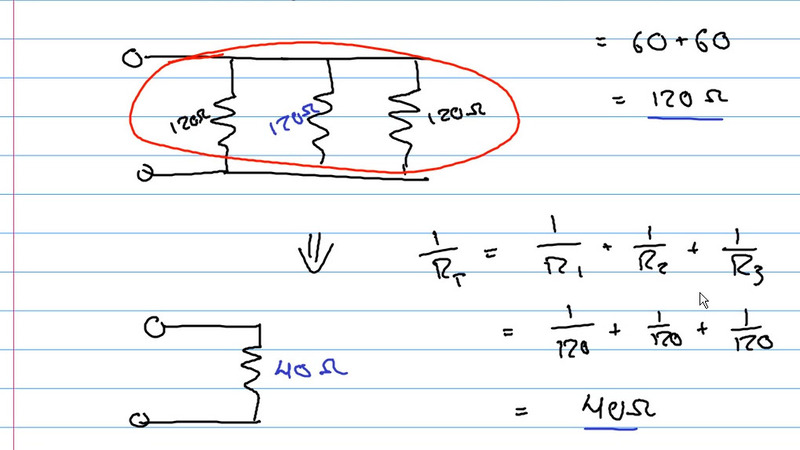 = 60 + 60
= 120 Ω
120Ω 120Ω 120Ω
1/R_T = 1/R_1 + 1/R_2 + 1/R_3
= 1/120 + 1/120 + 1/120
40 Ω
= 40Ω